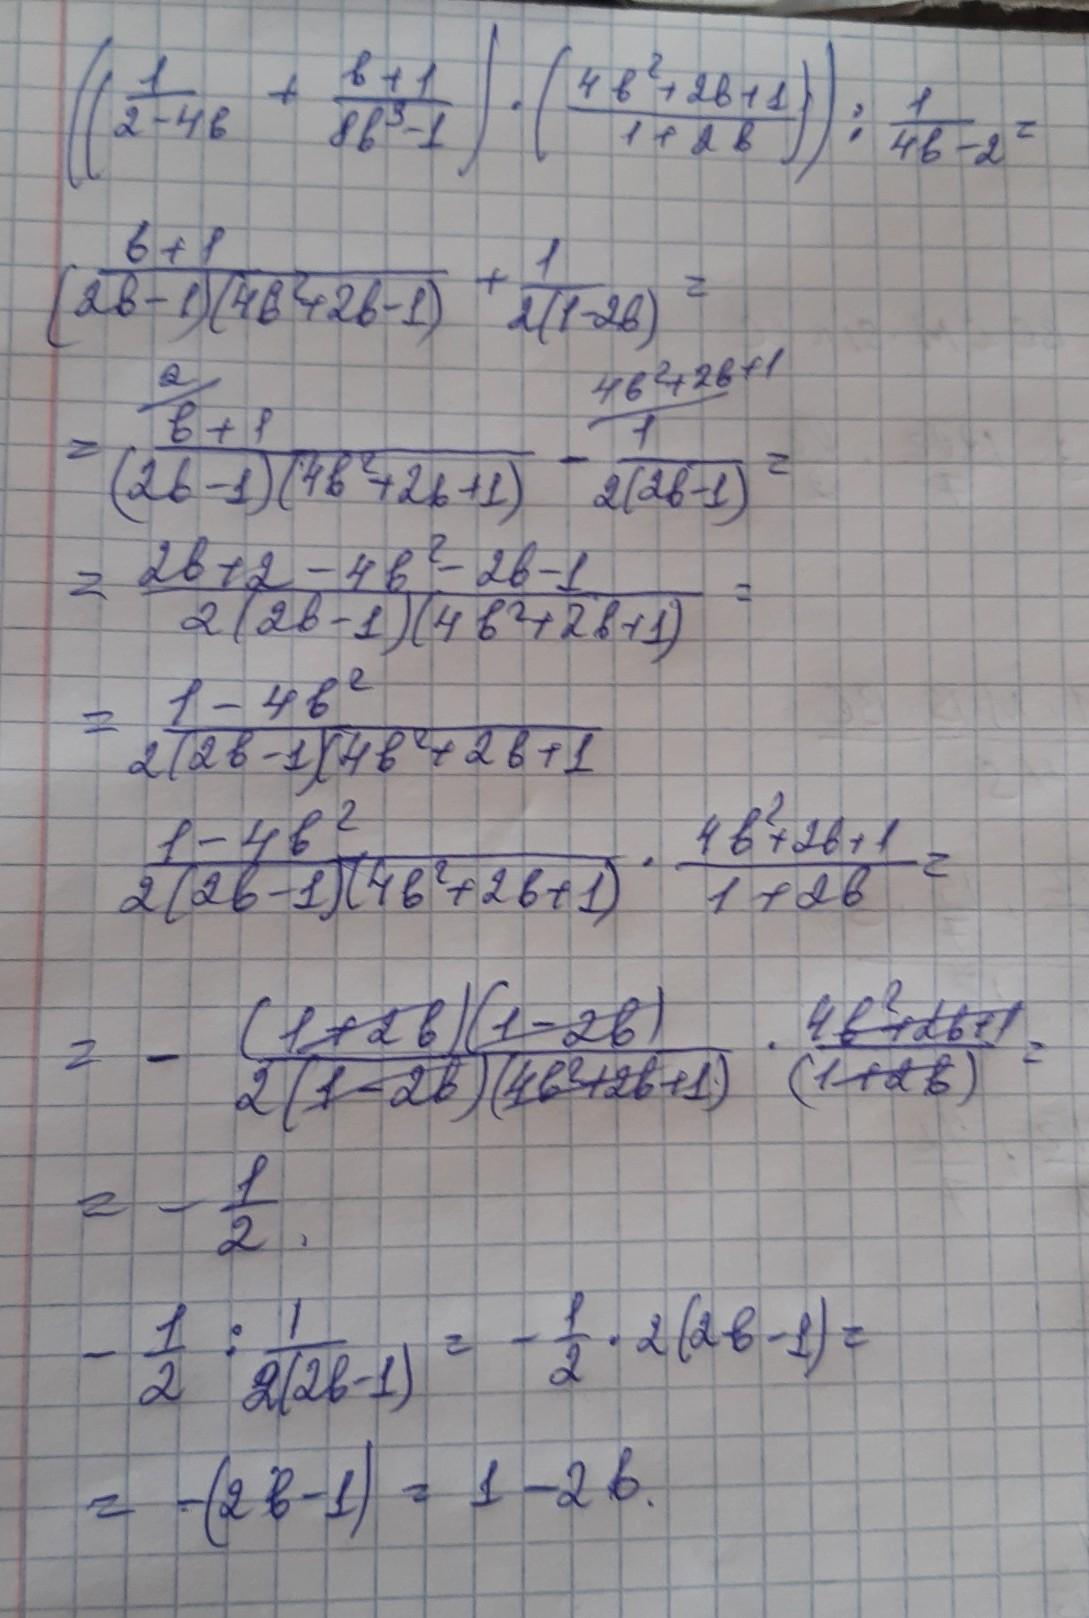 ((1/(2-4b) + (b+1)/(8b³-1)) · ((4b²+2b+1)/(1+2b))) : 1/(4b-2) =
(b+1)/((2b-1)(4b²+2b-1)) + 1/(2(1-2b)) =
= 2/ (b+1)/((2b-1)(4b²+2b+1)) - 4b²+2b+1/ 1/(2(2b-1)) =
= (2b+2-4b²-2b-1)/(2(2b-1)(4b²+2b+1)) =
= (1-4b²)/(2(2b-1)(4b²+2b+1
(1-4b²)/(2(2b-1)(4b²+2b+1)) · (4b²+2b+1)/(1+2b) =
= - ((1+2b)(1-2b))/(2(1-2b)(4b²+2b+1)) · (4b²+2b+1)/((1+2b)) =
= - 1/2.
- 1/2 : 1/(2(2b-1)) = - 1/2 · 2(2b-1) =
= -(2b-1) = 1-2b.